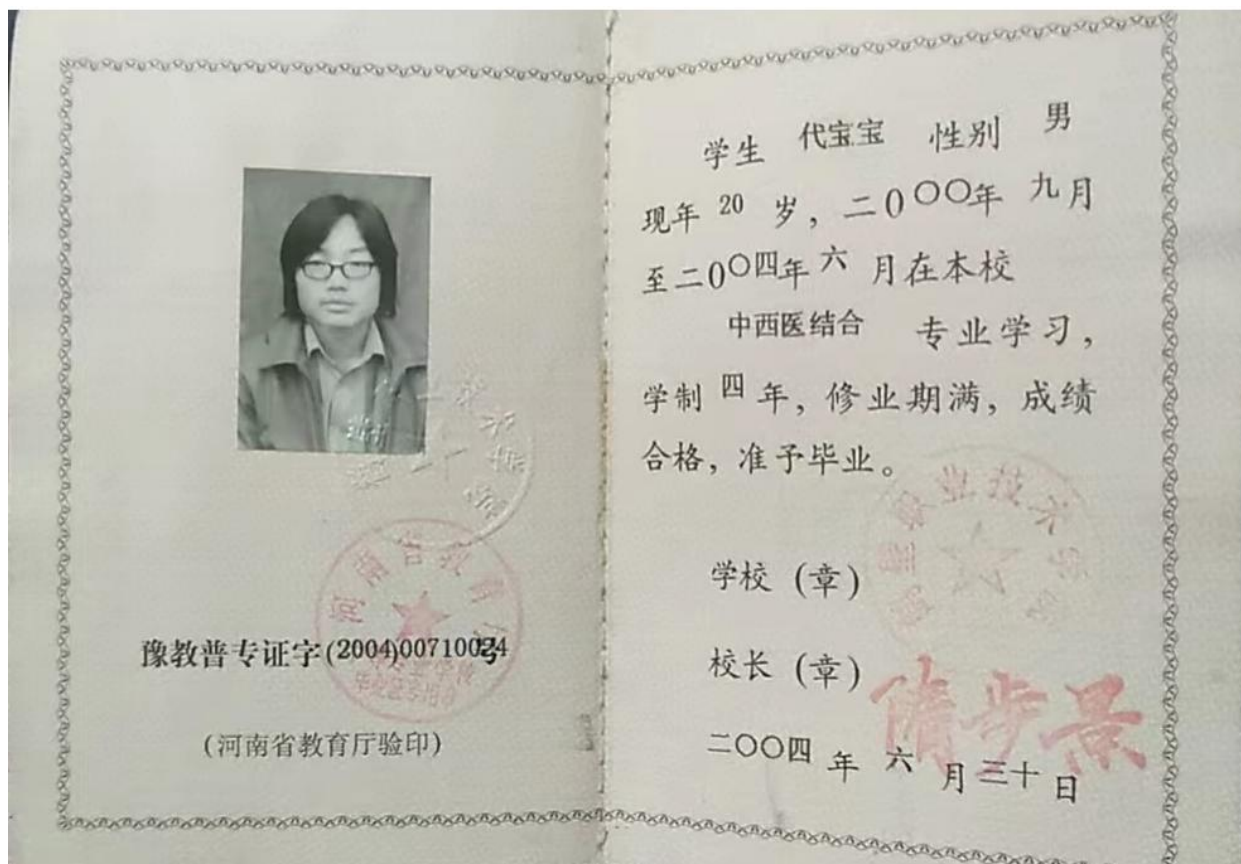 河南省教育厅
豫教普专证字(2004)00710024号
(河南省教育厅验印)
学生 代宝宝 性别 男
现年 20 岁，二0〇〇年 九月
至二0〇四年 六 月在本校
中西医结合 专业学习，
学制 四 年，修业期满，成绩
合格，准予毕业。
职业技术学院
学校 (章)
校长 (章)
隋步景
二〇〇四 年 六 月 三十 日